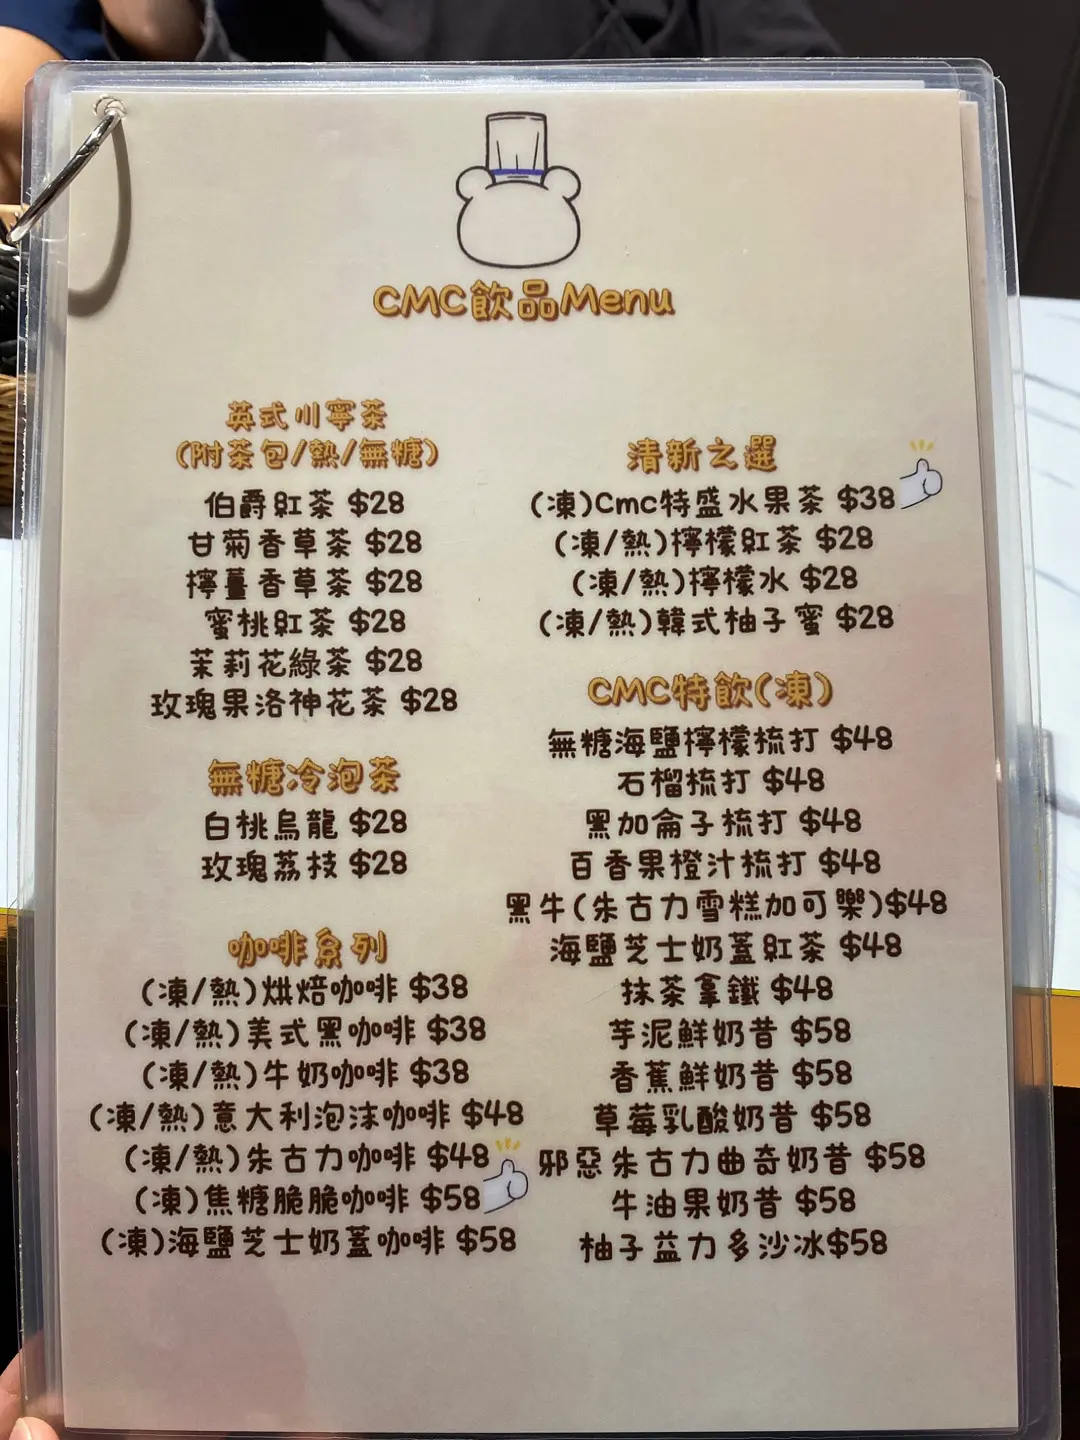 CMC飲品Menu
英式川寧茶
(附茶包/熱/無糖)
伯爵紅茶 $28
甘菊香草茶 $28
檸薑香草茶 $28
蜜桃紅茶 $28
茉莉花綠茶 $28
玫瑰果洛神花茶 $28
無糖冷泡茶
白桃烏龍 $28
玫瑰荔枝 $28
咖啡系列
(凍/熱)烘焙咖啡 $38
(凍/熱)美式黑咖啡 $38
(凍/熱)牛奶咖啡 $38
(凍/熱)意大利泡沫咖啡 $48
(凍/熱)朱古力咖啡 $48
(凍)焦糖脆脆咖啡 $58
(凍)海鹽芝士奶蓋咖啡 $58
清新之選
(凍)Cmc特盛水果茶 $38
(凍/熱)檸檬紅茶 $28
(凍/熱)檸檬水 $28
(凍/熱)韓式柚子蜜 $28
CMC特飲(凍)
無糖海鹽檸檬梳打 $48
石榴梳打 $48
黑加侖子梳打 $48
百香果橙汁梳打 $48
黑牛(朱古力雪糕加可樂)$48
海鹽芝士奶蓋紅茶 $48
抹茶拿鐵 $48
芋泥鮮奶昔 $58
香蕉鮮奶昔 $58
草莓乳酸奶昔 $58
邪惡朱古力曲奇奶昔 $58
牛油果奶昔 $58
柚子益力多沙冰$58